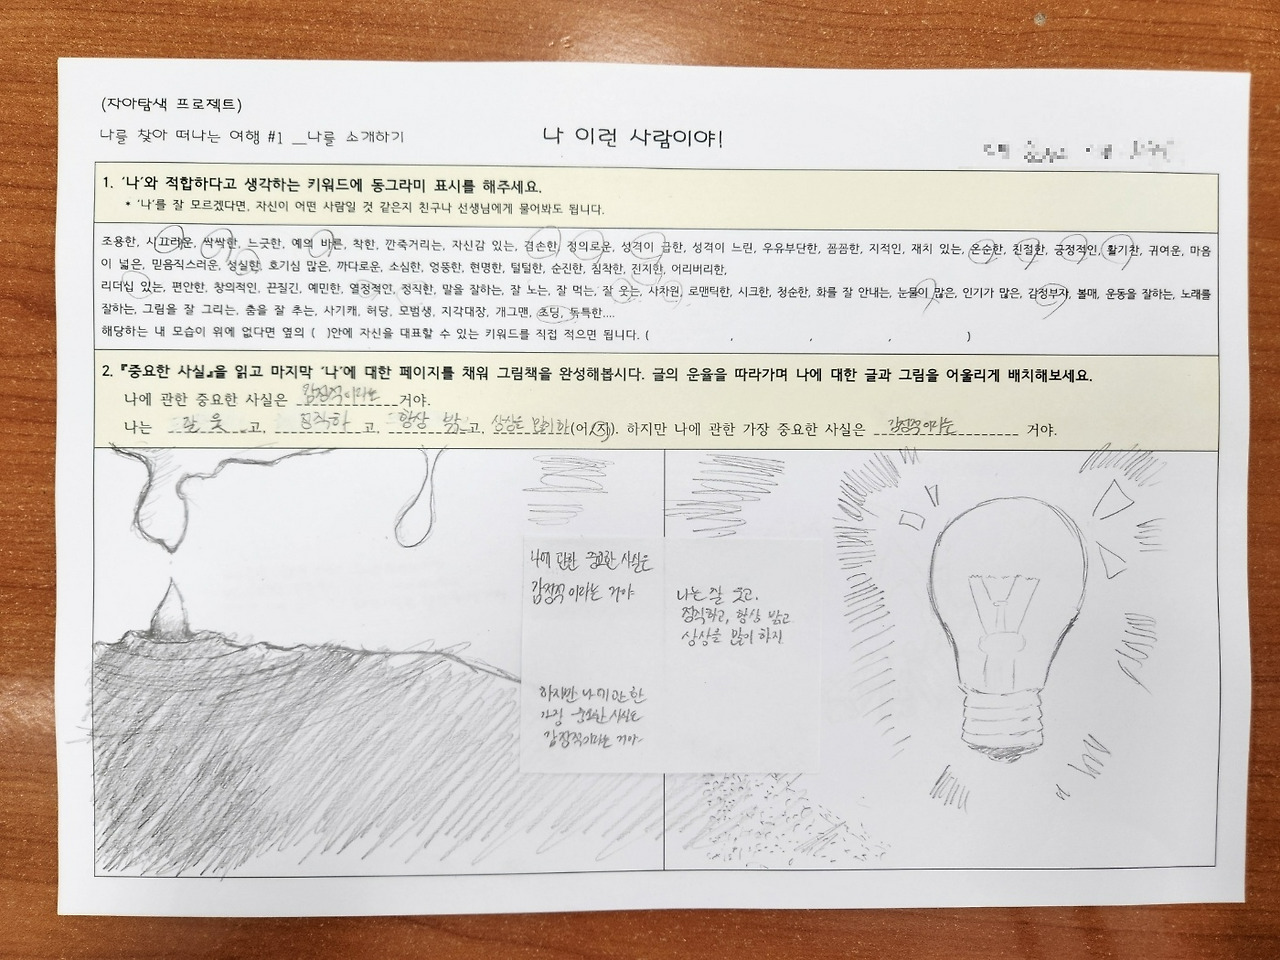 (자아탐색 프로젝트)
나를 찾아 떠나는 여행 #1 __나를 소개하기
나 이런 사람이야!
1. '나'와 적합하다고 생각하는 키워드에 동그라미 표시를 해주세요.
* '나'를 잘 모르겠다면, 자신이 어떤 사람일 것 같은지 친구나 선생님에게 물어봐도 됩니다.
조용한, 시끄러운, 싹싹한, 느긋한, 예의 바른, 착한, 깐죽거리는, 자신감 있는, 겸손한, 정의로운, 성격이 급한, 성격이 느린, 우유부단한, 꼼꼼한, 지적인, 재치 있는, 온순한, 친절한, 긍정적인, 활기찬, 귀여운, 마음
이 넓은, 믿음직스러운, 성실한, 호기심 많은, 까다로운, 소심한, 엉뚱한, 현명한, 털털한, 순진한, 침착한, 진지한, 어리버리한,
리더십 있는, 편안한, 창의적인, 끈질긴, 예민한, 열정적인, 정직한, 말을 잘하는, 잘 노는, 잘 먹는, 잘 웃는, 사차원, 로맨틱한, 시크한, 청순한, 화를 잘 안내는, 눈물이 많은, 인기가 많은, 감정부자, 볼매, 운동을 잘하는, 노래를
잘하는, 그림을 잘 그리는, 춤을 잘 추는, 사기캐, 허당, 모범생, 지각대장, 개그맨, 초딩, 독특한....
해당하는 내 모습이 위에 없다면 옆의 ( )안에 자신을 대표할 수 있는 키워드를 직접 적으면 됩니다. ( , , , )
2. 『중요한 사실』을 읽고 마지막 '나'에 대한 페이지를 채워 그림책을 완성해봅시다. 글의 운율을 따라가며 나에 대한 글과 그림을 어울리게 배치해보세요.
나에 관한 중요한 사실은 감정적이라는 거야.
나는 잘 웃고, 정직하고, 항상 밝고, 상상을 많이 하(어/지). 하지만 나에 관한 가장 중요한 사실은 감정적이라는 거야.
나에 관한 중요한 사실은
감정적이라는 거야
나는 잘 웃고,
정직하고, 항상 밝고
상상을 많이 하지
하지만 나에 관한
가장 중요한 사실은
감정적이라는 거야.